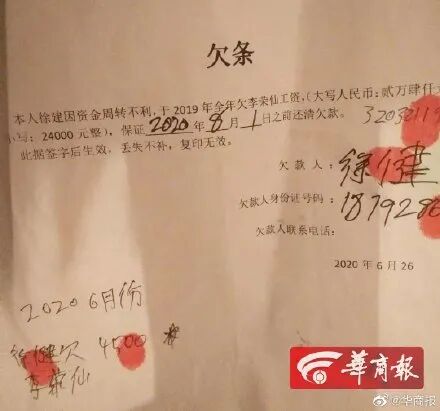 欠条
本人徐建因资金周转不利，于2019年全年欠李荣仙工资，（大写人民币：贰万肆仟
小写：24000元整），保证2020年8月1日之前还清欠款。
3203011
此据签字后生效，丢失不补，复印无效。
欠款人：徐健
欠款人身份证号码：
187928
欠款人联系电话：
2020年6月26
2020 6月份
徐健欠 4500
李荣仙
华商报
@华商报